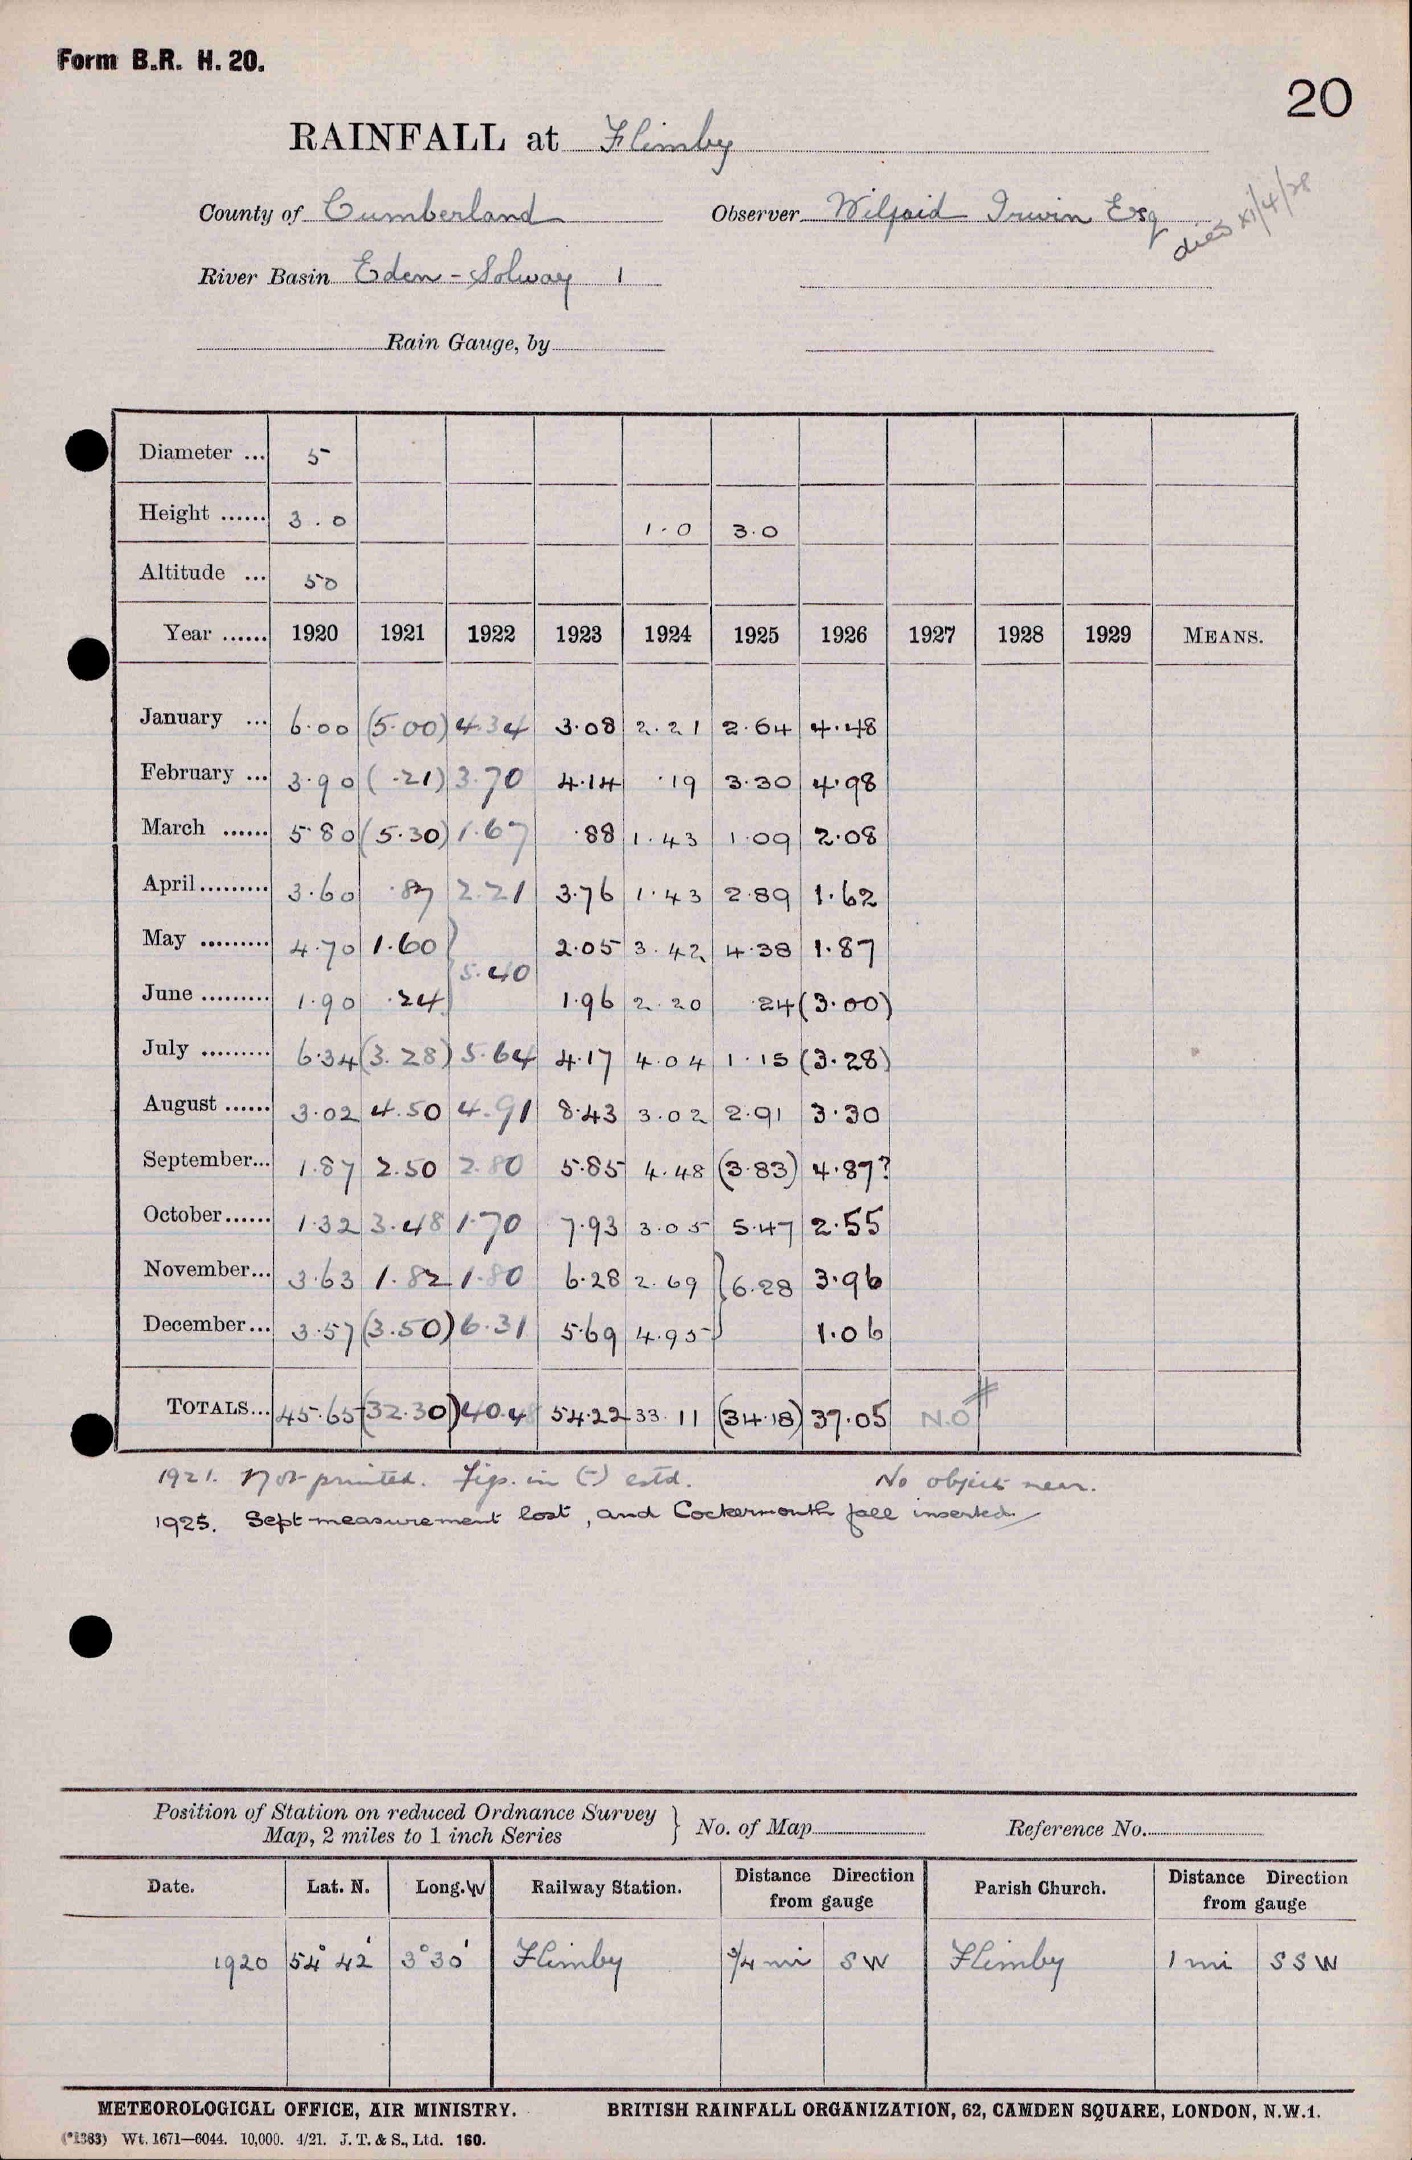 Form B.R. H. 20.
20
RAINFALL at Flimby
County of Cumberland Observer Wilfrid Irwin Esq
died XI/4/28
River Basin Eden - Solway 1
Rain Gauge, by
Diameter ... 5
Height ...... 3.0 1.0 3.0
Altitude ... 50
Year ...... 1920 1921 1922 1923 1924 1925 1926 1927 1928 1929 MEANS.
January ... 6.00 (5.00) 4.34 3.08 2.21 2.64 4.48
February ... 3.90 (.21) 3.70 4.14 .19 3.30 4.98
March ...... 5.80 (5.30) 1.67 .88 1.43 1.09 2.08
April ......... 3.60 .87 2.21 3.76 1.43 2.89 1.62
May ......... 4.70 1.60 } 5.40 2.05 3.42 4.38 1.87
June ......... 1.90 .24 1.96 2.20 .24 (3.00)
July ......... 6.34 (3.28) 5.64 4.17 4.04 1.15 (3.28)
August ...... 3.02 4.50 4.91 8.43 3.02 2.91 3.30
September... 1.87 2.50 2.80 5.85 4.48 (3.83) 4.87?
October ...... 1.32 3.48 1.70 7.93 3.05 5.47 2.55
November... 3.63 1.82 1.80 6.28 2.69 } 6.28 3.96
December... 3.57 (3.50) 6.31 5.69 4.95 1.06
TOTALS... 45.65 (32.30) 40.48 54.22 33.11 (34.18) 37.05 N.O #
1921. Not printed. Figs. in (-) estd. No objects near.
1925. Sept measurement lost, and Cockermouth fall inserted
Position of Station on reduced Ordnance Survey
Map, 2 miles to 1 inch Series } No. of Map Reference No.
Date. Lat. N. Long. W Railway Station. Distance Direction from gauge Parish Church. Distance Direction from gauge
1920 54° 42' 3° 30' Flimby 3/4 mi SW Flimby 1 mi SSW
METEOROLOGICAL OFFICE, AIR MINISTRY. BRITISH RAINFALL ORGANIZATION, 62, CAMDEN SQUARE, LONDON, N.W.1.
(*1383) Wt. 1671—6044. 10,000. 4/21. J. T. & S., Ltd. 160.